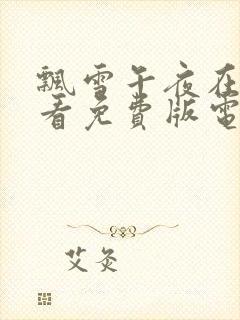 飄雪午夜在
看免費版電
艾灸